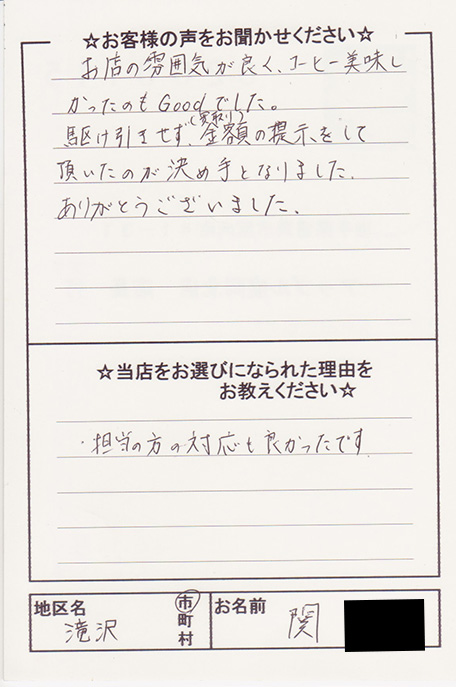 ☆お客様の声をお聞かせください☆
お店の雰囲気が良く、コーヒー美味し
かったのもGoodでした。
(買取り)
駆け引きせず、金額の提示をして
頂いたのが決め手となりました。
ありがとうございました。
☆当店をお選びになられた理由を
お教えください☆
・担当の方の対応も良かったです
地区名
滝沢
市
町
村
お名前
関